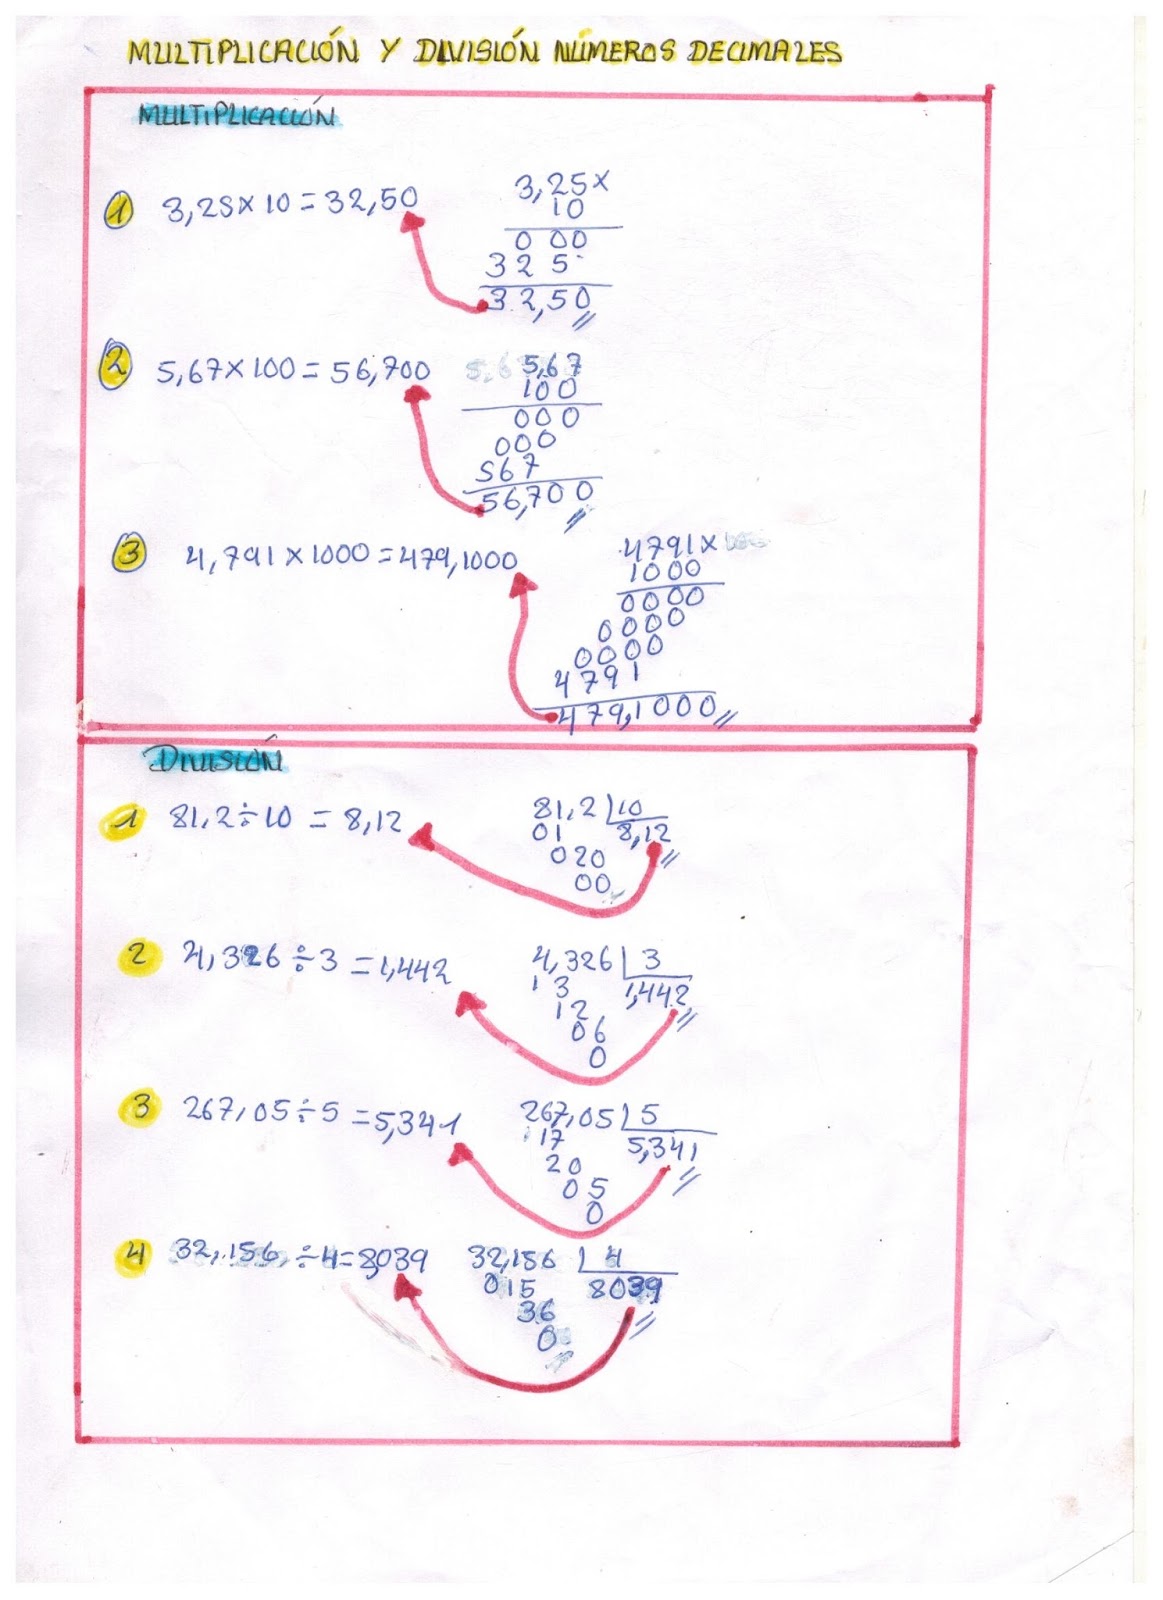 MULTIPLICACIÓN Y DIVISIÓN NÚMEROS DECIMALES
MULTIPLICACIÓN
1 3,25 x 10 = 32,50
3,25 x
10
0 00
3 2 5
32,50
2 5,67 x 100 = 56,700
5,67
100
000
000
567
56,700
3 4,791 x 1000 = 479,1000
4791 x
1000
0000
0000
0000
4791
479,1000
DIVISIÓN
1 81,2 ÷ 10 = 8,12
81,2 10
01 8,12
020
00
2 4,326 ÷ 3 = 1,442
4,326 3
13 1,442
12
06
0
3 267,05 ÷ 5 = 5,341
267,05 5
17 5,341
20
05
0
4 32,156 ÷ 4 = 8,039
32,156 4
015 8039
36
0